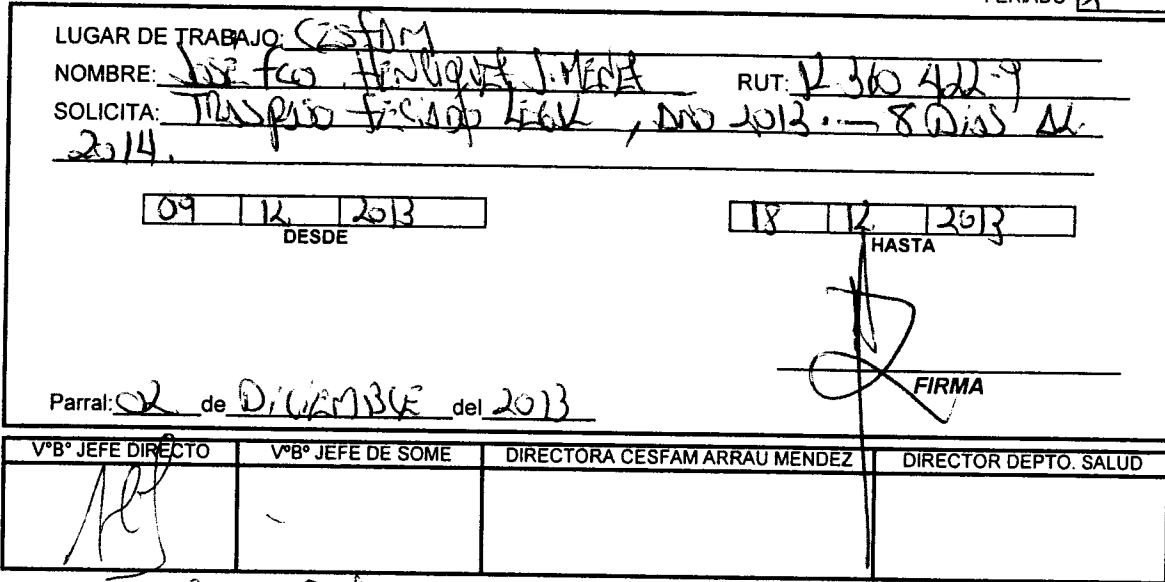 LUGAR DE TRABAJO: CESFAM
NOMBRE: JOSE FCO HENRIQUEZ JIMENEZ RUT: 12.360.422-9
SOLICITA: TRASPASO FERIADO LEGAL, AÑO 2013.- 8 DIAS AL
2014.
09 12 2013 18 12 2013
DESDE HASTA
FIRMA
Parral: 02 de DICIEMBRE del 2013
V°B° JEFE DIRECTO V°B° JEFE DE SOME DIRECTORA CESFAM ARRAU MENDEZ DIRECTOR DEPTO. SALUD